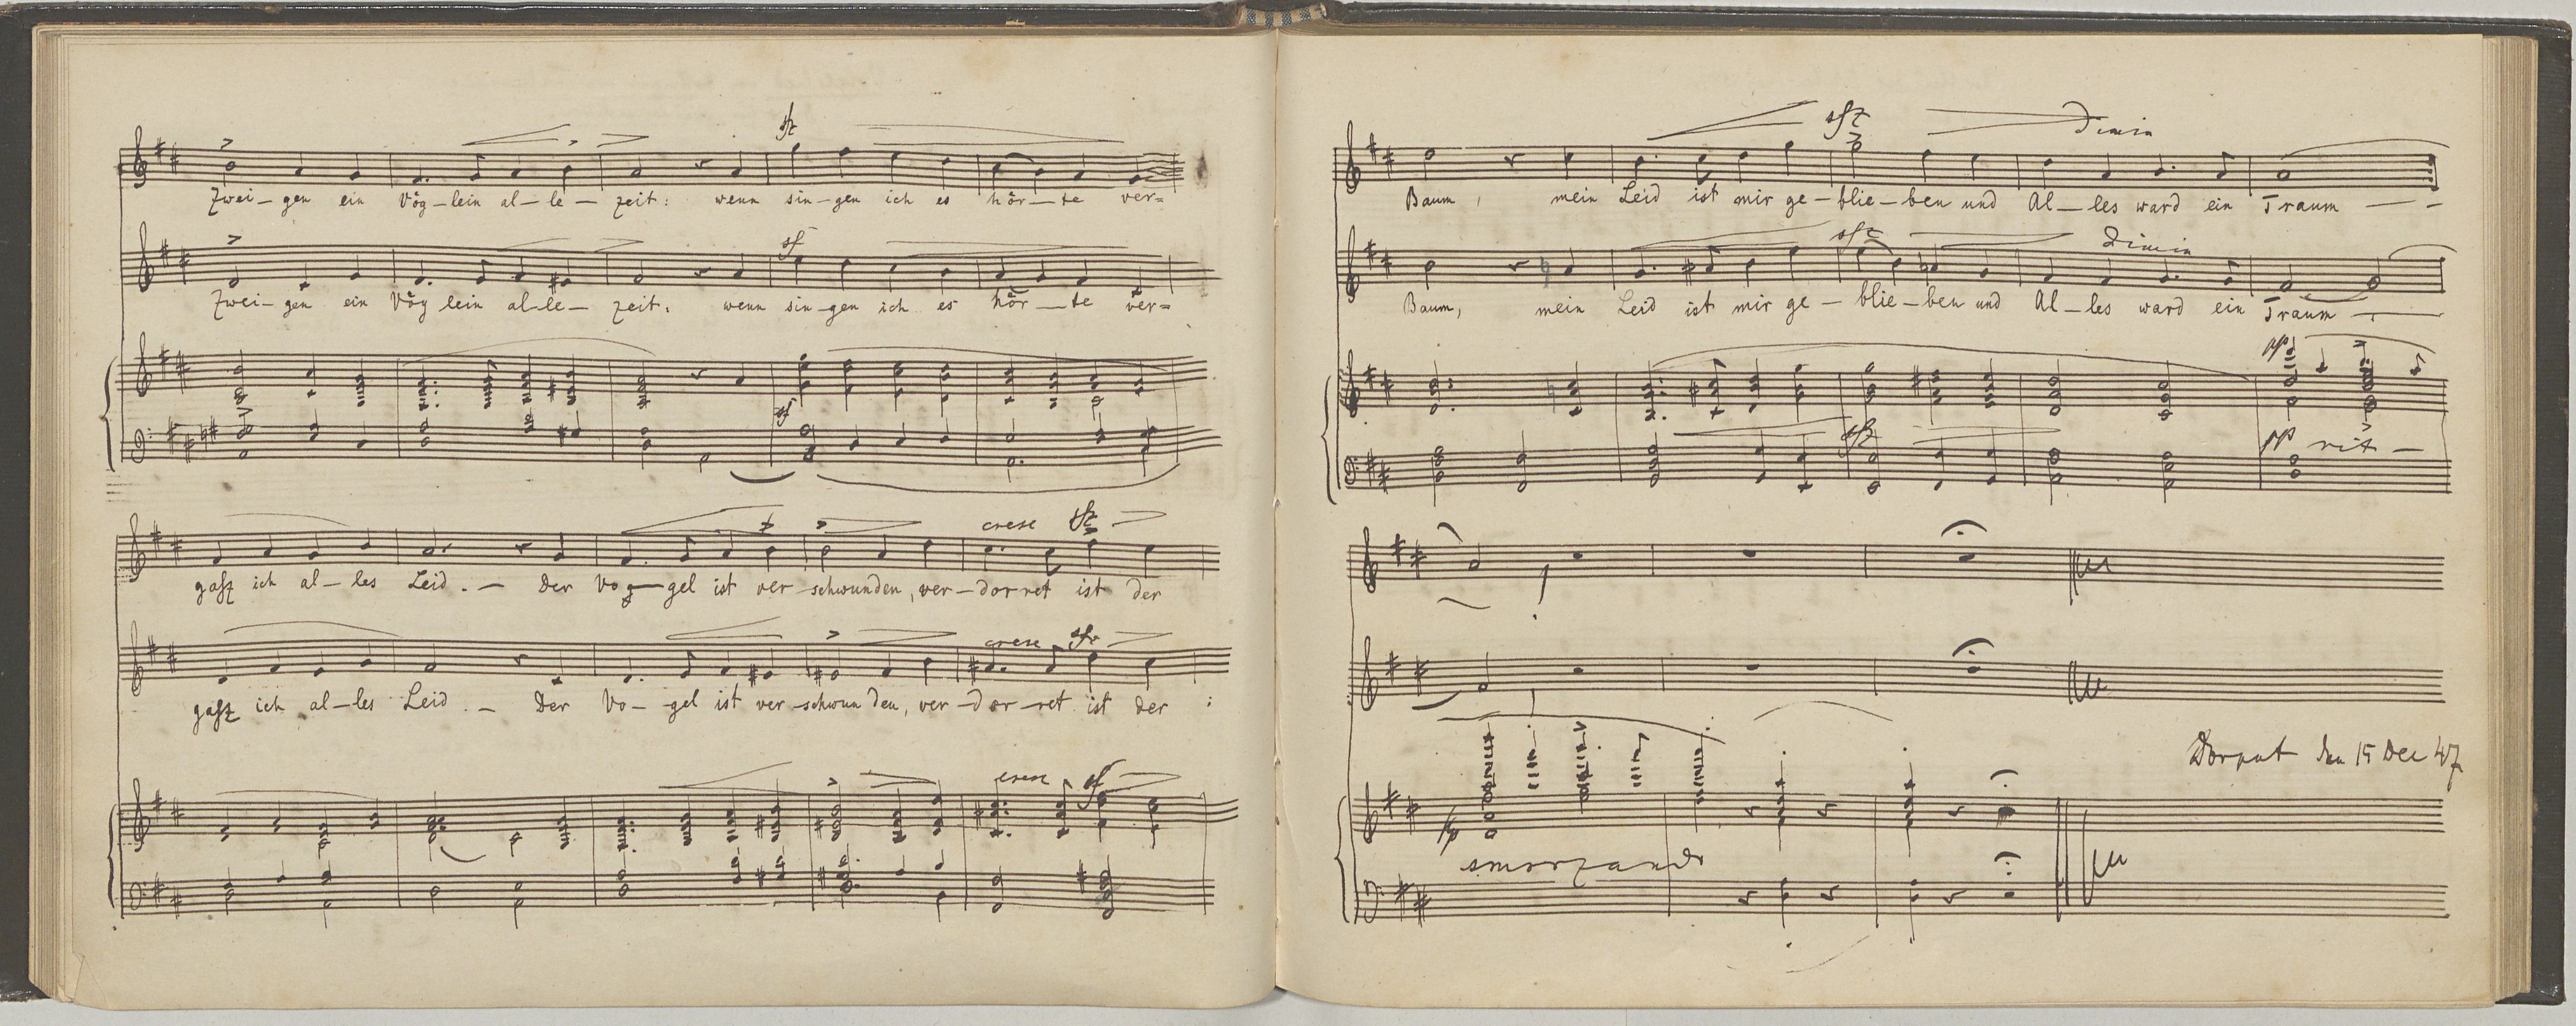 sfz
Zwei- gen ein Vög-lein al-le- zeit: wenn sin-gen ich es hör-te ver=
sf
Zwei- gen ein Vög lein al-le- zeit. wenn sin-gen ich es hör-te ver=
sf
cresc sfz
gaß ich al-les Leid.- Der Vog-gel ist ver-schwunden, ver-dorret ist der
cresc sfz
gaß ich al-les Leid.- Der Vo-gel ist ver-schwunden, ver-dor-ret ist der
cresc sf
sfz Dimin
Baum, mein Leid ist mir ge-blie-ben und Al-les ward ein Traum
sfz Dimin
Baum, mein Leid ist mir ge-blie-ben und Al-les ward ein Traum
pp
sfz pp rit-
Dorpat den 15 Dec 47
fp
smorzando